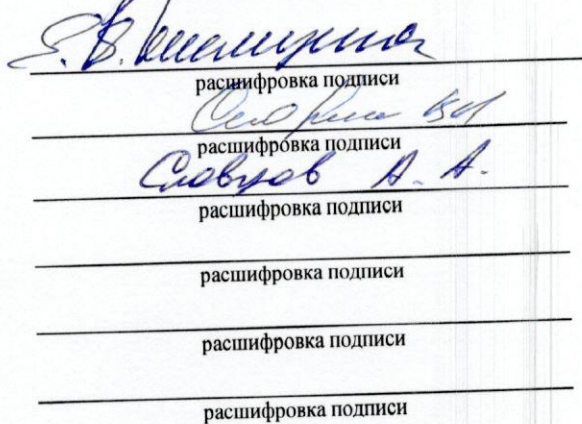 Е.В.
расшифровка подписи
расшифровка подписи
Словцов А. А.
расшифровка подписи
расшифровка подписи
расшифровка подписи
расшифровка подписи